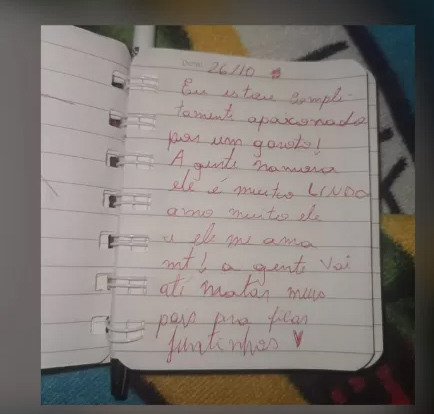 Date: 26/10
Eu estou compli
tamente apaxonado
por um garoto!
A gente namora
ele é muito LINDO
amo muito ele
e ele me ama
mt! a gente vai
até matar meus
pais pra ficar
juntinhos ♥